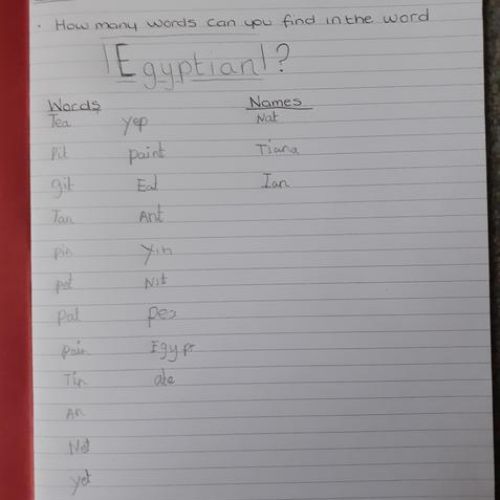 · How many words can you find in the word
|Egyptian|?
Words Names
Tea yep Nat
Pit paint Tiana
git Eat Ian
Tan Ant
pin yin
pet Nit
pat pea
pain Egypt
Tin ate
An
Net
yet